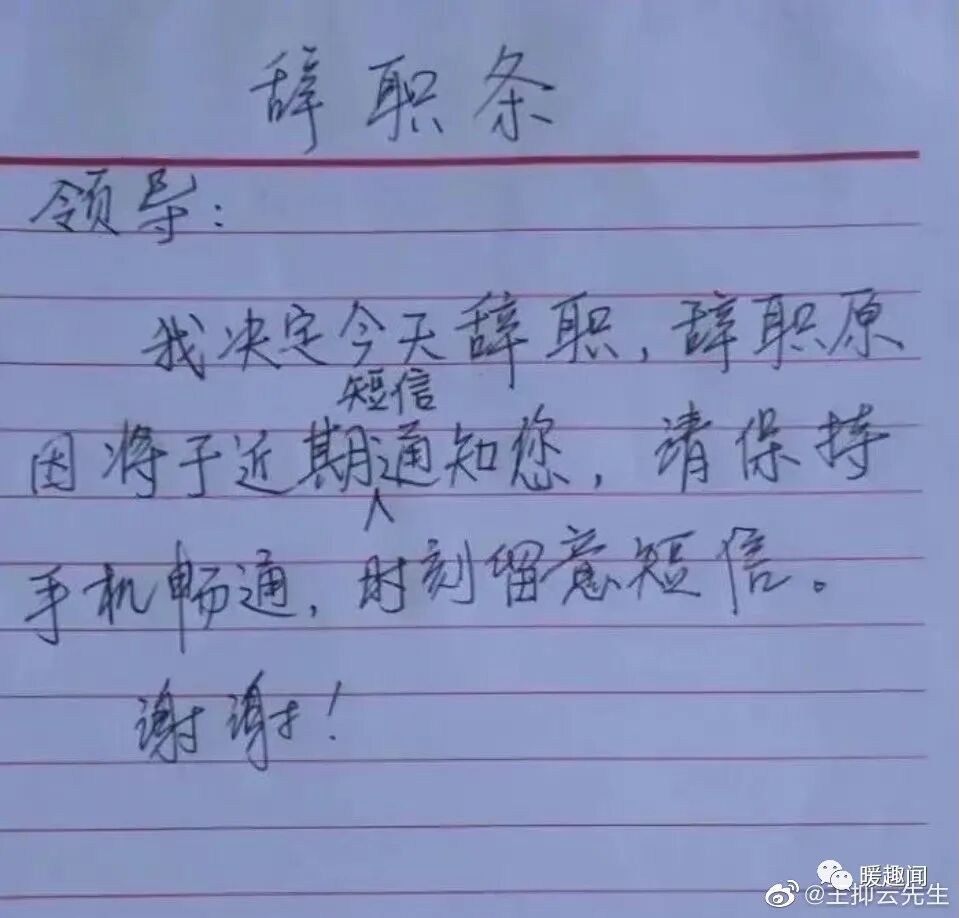 辞职条
领导:
我决定今天辞职,辞职原
因将于近期短信通知您,请保持
手机畅通,时刻留意短信。
谢谢!
暖趣闻
@王抑云先生